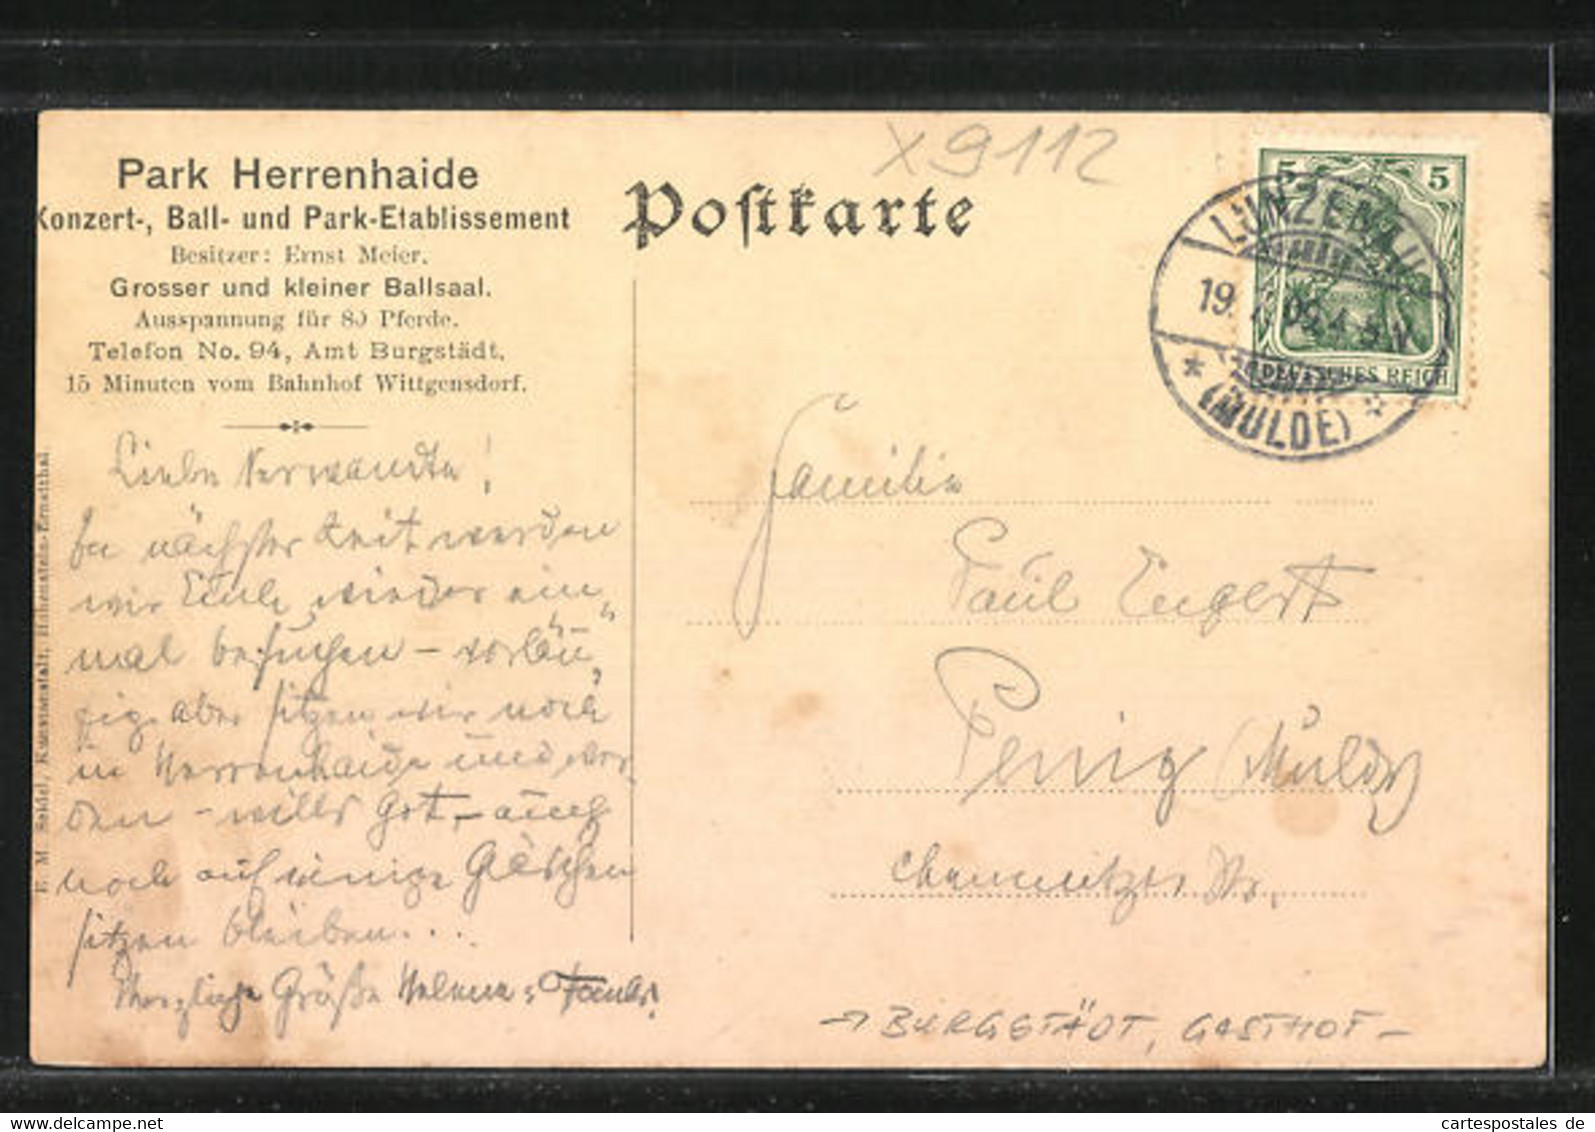 Park Herrenhaide
Konzert-, Ball- und Park-Etablissement
Besitzer: Ernst Meier.
Grosser und kleiner Ballsaal.
Ausspannung für 80 Pferde.
Telefon No. 94, Amt Burgstädt.
15 Minuten vom Bahnhof Wittgensdorf.
Liebe Verwandte!
In nächster Zeit werden
wir Euch wieder ein„
mal besuchen – vorläu„
fig aber sitzen wir noch
in Herrenhaide und wer-
den – wills Gott, – auch
noch auf einige Gläschen
sitzen bleiben...
Herzliche Grüße Helene
E. M. Seidel, Kunstanstalt, Hohenstein-Ernstthal.
Postkarte
X9112
5 5
DEUTSCHES REICH
LUNZENAU
19.
(MULDE)
Familie
Paul Engert
Penig (Mulde)
Chemnitzer Str.
→ BURGSTÄDT, GASTHOF –
cartespostales de